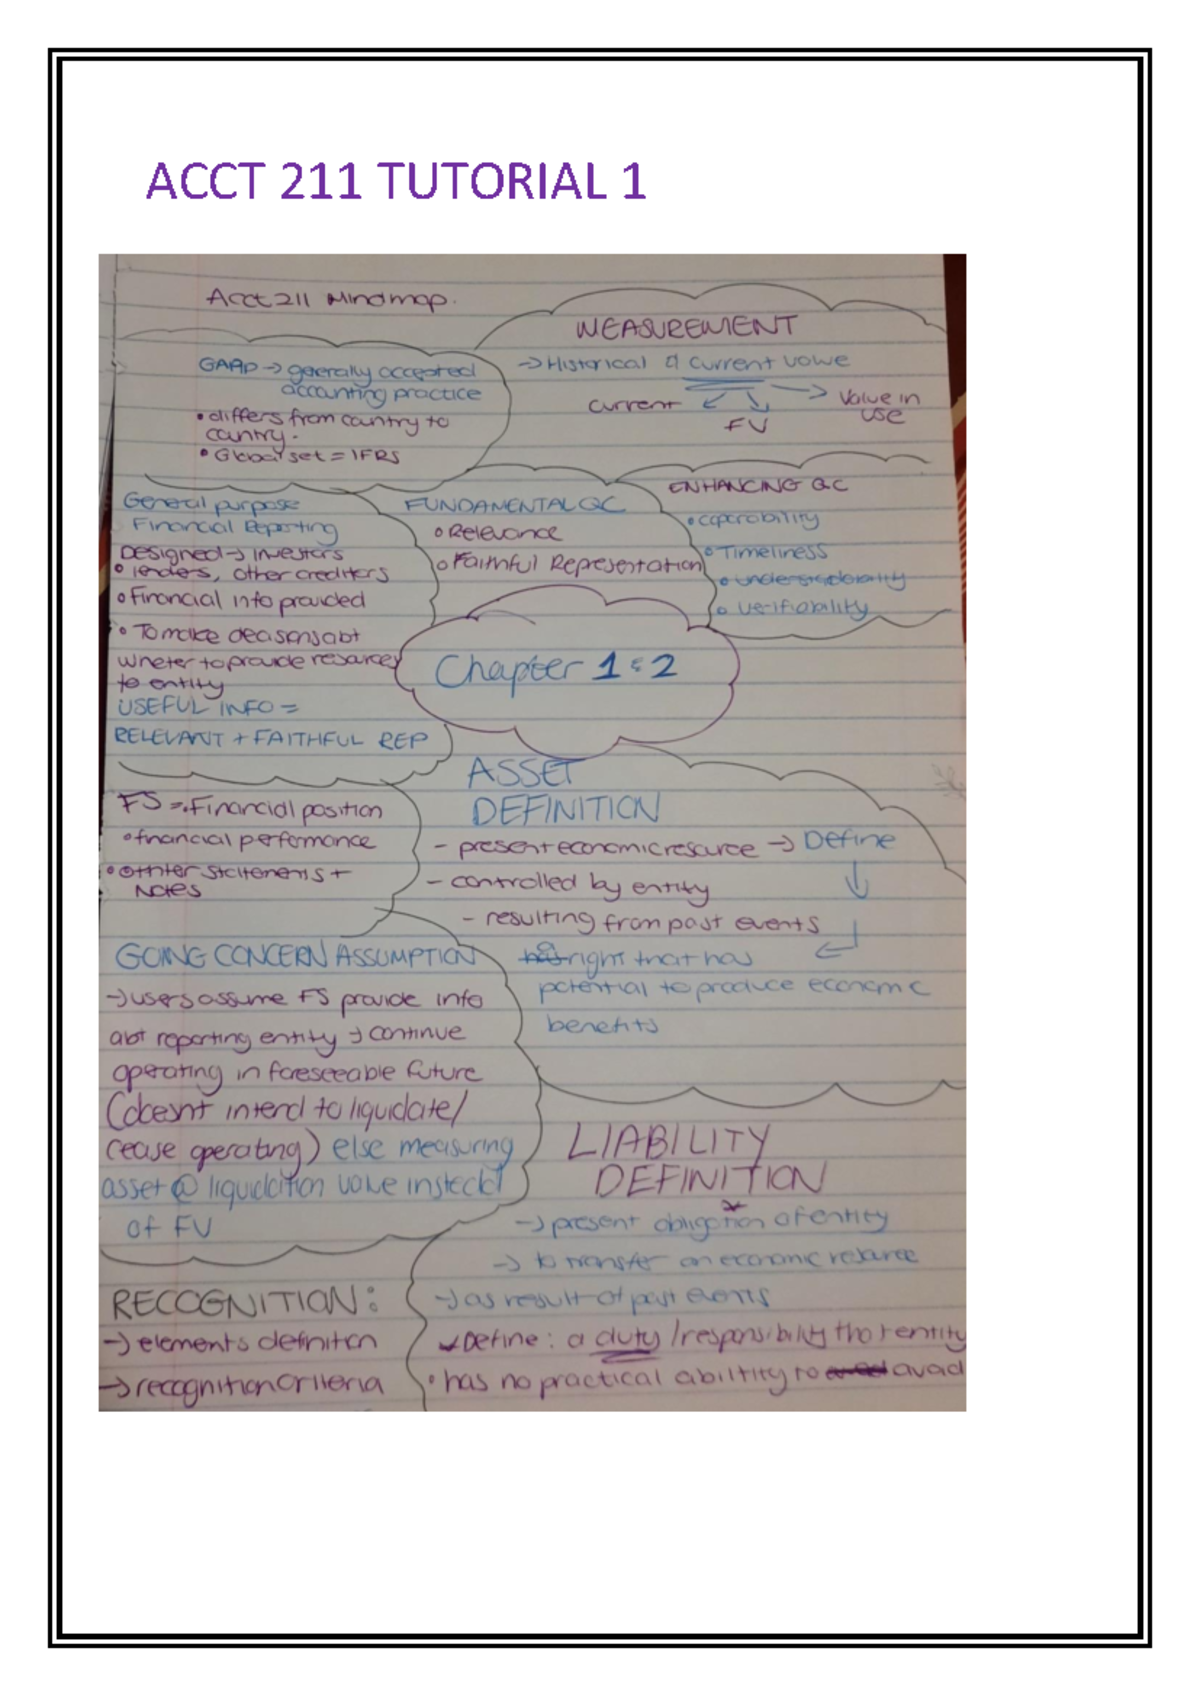 ACCT 211 TUTORIAL 1
Acct 211 Mindmap.
MEASUREMENT
→ Historical & current value
current
FV
Value in
use
GAAP → generally accepted
accounting practice
• differs from country to
country.
• Global set = IFRS
General purpose
Financial Reporting
Designed → Investors
• lenders, other creditors
• Financial info provided
• To make deasons abt
wheter to provide resources
to entity
USEFUL INFO =
RELEVANT + FAITHFUL REP
FUNDAMENTAL QC
• Relevance
• Faithful Representation
ENHANCING QC
• Timeliness
• verifiability
Chapter 1 & 2
FS = • Financial position
• financial performance
• other statements +
Notes
ASSET
DEFINITION
- present economic resource → Define
- controlled by entity
- resulting from past events
right that has
potential to produce economic
benefits
GOING CONCERN ASSUMPTION
→ users assume FS provide info
abt reporting entity → continue
operating in foreseeable future
(doesnt intend to liquidate/
cease operating) else measuring
asset @ liquidation value instead
of FV
LIABILITY
DEFINITION
→ present obligation of entity
→ to transfer an economic resource
→ as result of past events
Define: a duty / responsibility that entity
• has no practical ability to avoid
RECOGNITION:
→ elements definition
→ recognition criteria